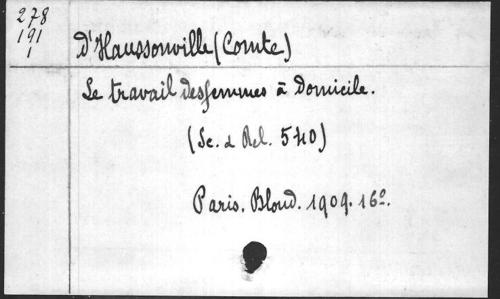 278
191
1
D'Haussonville (Comte)
Le travail des femmes à Domicile.
(Sc. & Rel. 540)
Paris. Bloud. 1909. 16º.